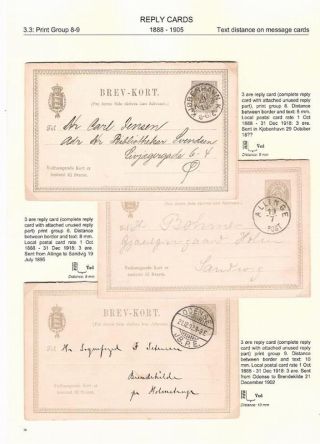 REPLY CARDS
3.3: Print Group 8-9
1888 - 1905
Text distance on message cards
BREV-KORT.
(Paa denne Side skrives kun Adressen.)
Hr. Carl Jensen
adr Hr. Bibliothekar Svendsen
6 4
Vedhængende Kort er
bestemt til Svar.
3 øre reply card (complete reply
card with attached unused reply
part), print group 8. Distance
between border and text: 8 mm.
Local postal card rate 1 Oct
1888 - 31 Dec 1918: 3 øre.
Sent in Kjobenhavn 29 October
1877
Ved
Distance: 8 mm
3 øre reply card (complete reply
card with attached unused reply
part) print group 8. Distance
between border and text: 8 mm.
Local postal card rate 1 Oct
1888 - 31 Dec 1918: 3 øre.
Sent from Allinge to Sandvig 19
July 1895
Ved
Distance: 8 mm
BREV-KORT.
ALLINGE
Sandvig
Vedhængende Kort er
bestemt til Svar.
BREV-KORT.
ODENSE
Hr.
Brendekilde
pr Holmstrup
Vedhængende Kort er
bestemt til Svar.
3 øre reply card (complete reply
card with attached unused reply
part) print group 9. Distance
between border and text: 10
mm. Local postal card rate 1 Oct
1888 - 31 Dec 1918: 3 øre. Sent
from Odense to Brendekilde 21
December 1902
Ved
Distance: 10 mm